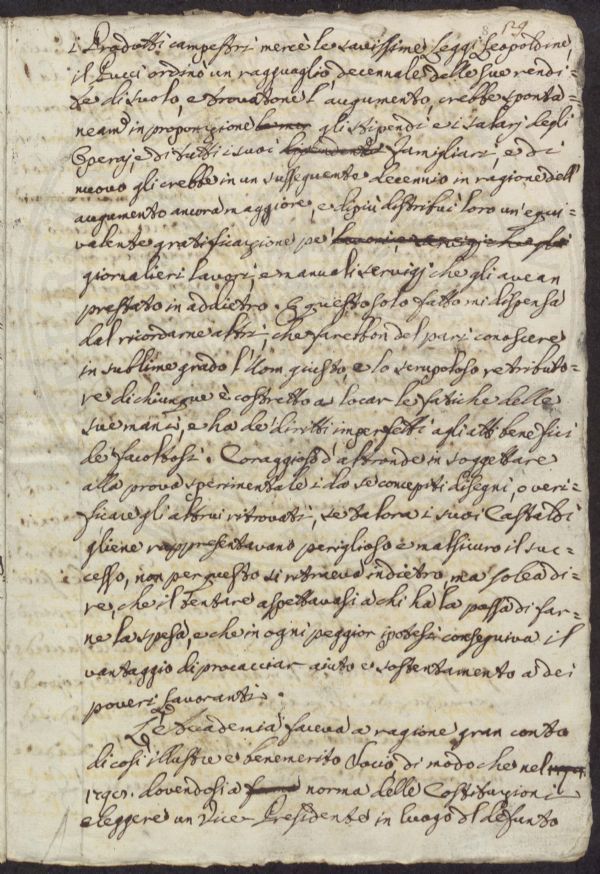 i Prodotti campestri mercè le savissime Leggi Leopoldine,
il Pucci ordinò un ragguaglio decennale delle sue rendi-
te di suolo, e trovatone l'augumento, crebbe sponta-
neam.e in proporzione gli stipendi e i salarj degli
Operaj, e di tutti i suoi famigliari, e di
nuovo gli crebbe in un susseguente decennio in ragione dell'
augumento ancora maggiore, e di più distribuì loro un'equi-
valente gratificazione pe'
giornalieri lavori, e manuali servigj che gli avean
prestato in addietro. E questo solo fatto mi dispensa
dal ricordarne altri, che farebbon del pari conoscere
in sublime grado l'Uom giusto, e lo scrupoloso retributo-
re di chiunque è costretto a locar le fatiche delle
sue mani, e ha de' diritti imperfetti agli atti benefici
de' facoltosi. Coraggioso d'altronde in soggettare
alla prova sperimentale i da se concepiti disegni, o veri-
ficare gli altrui ritrovati, se talora i suoi Castaldi
gliene rappresentavano periglioso e malsicuro il suc-
cesso, non per questo si ritraeva indietro, ma solea di-
re, che il tentare aspettavasi a chi ha la possa di far-
ne la spesa, e che in ogni peggior ipotesi conseguiva il
vantaggio di procacciar aiuto e sostentamento a dei
poveri Lavoranti.
L'Accademia faceva a ragione gran conto
di così illustre e benemerito Socio, di modo che nel
dovendosi a norma delle Costituzioni
eleggere un Vice-Presidente in luogo del defunto